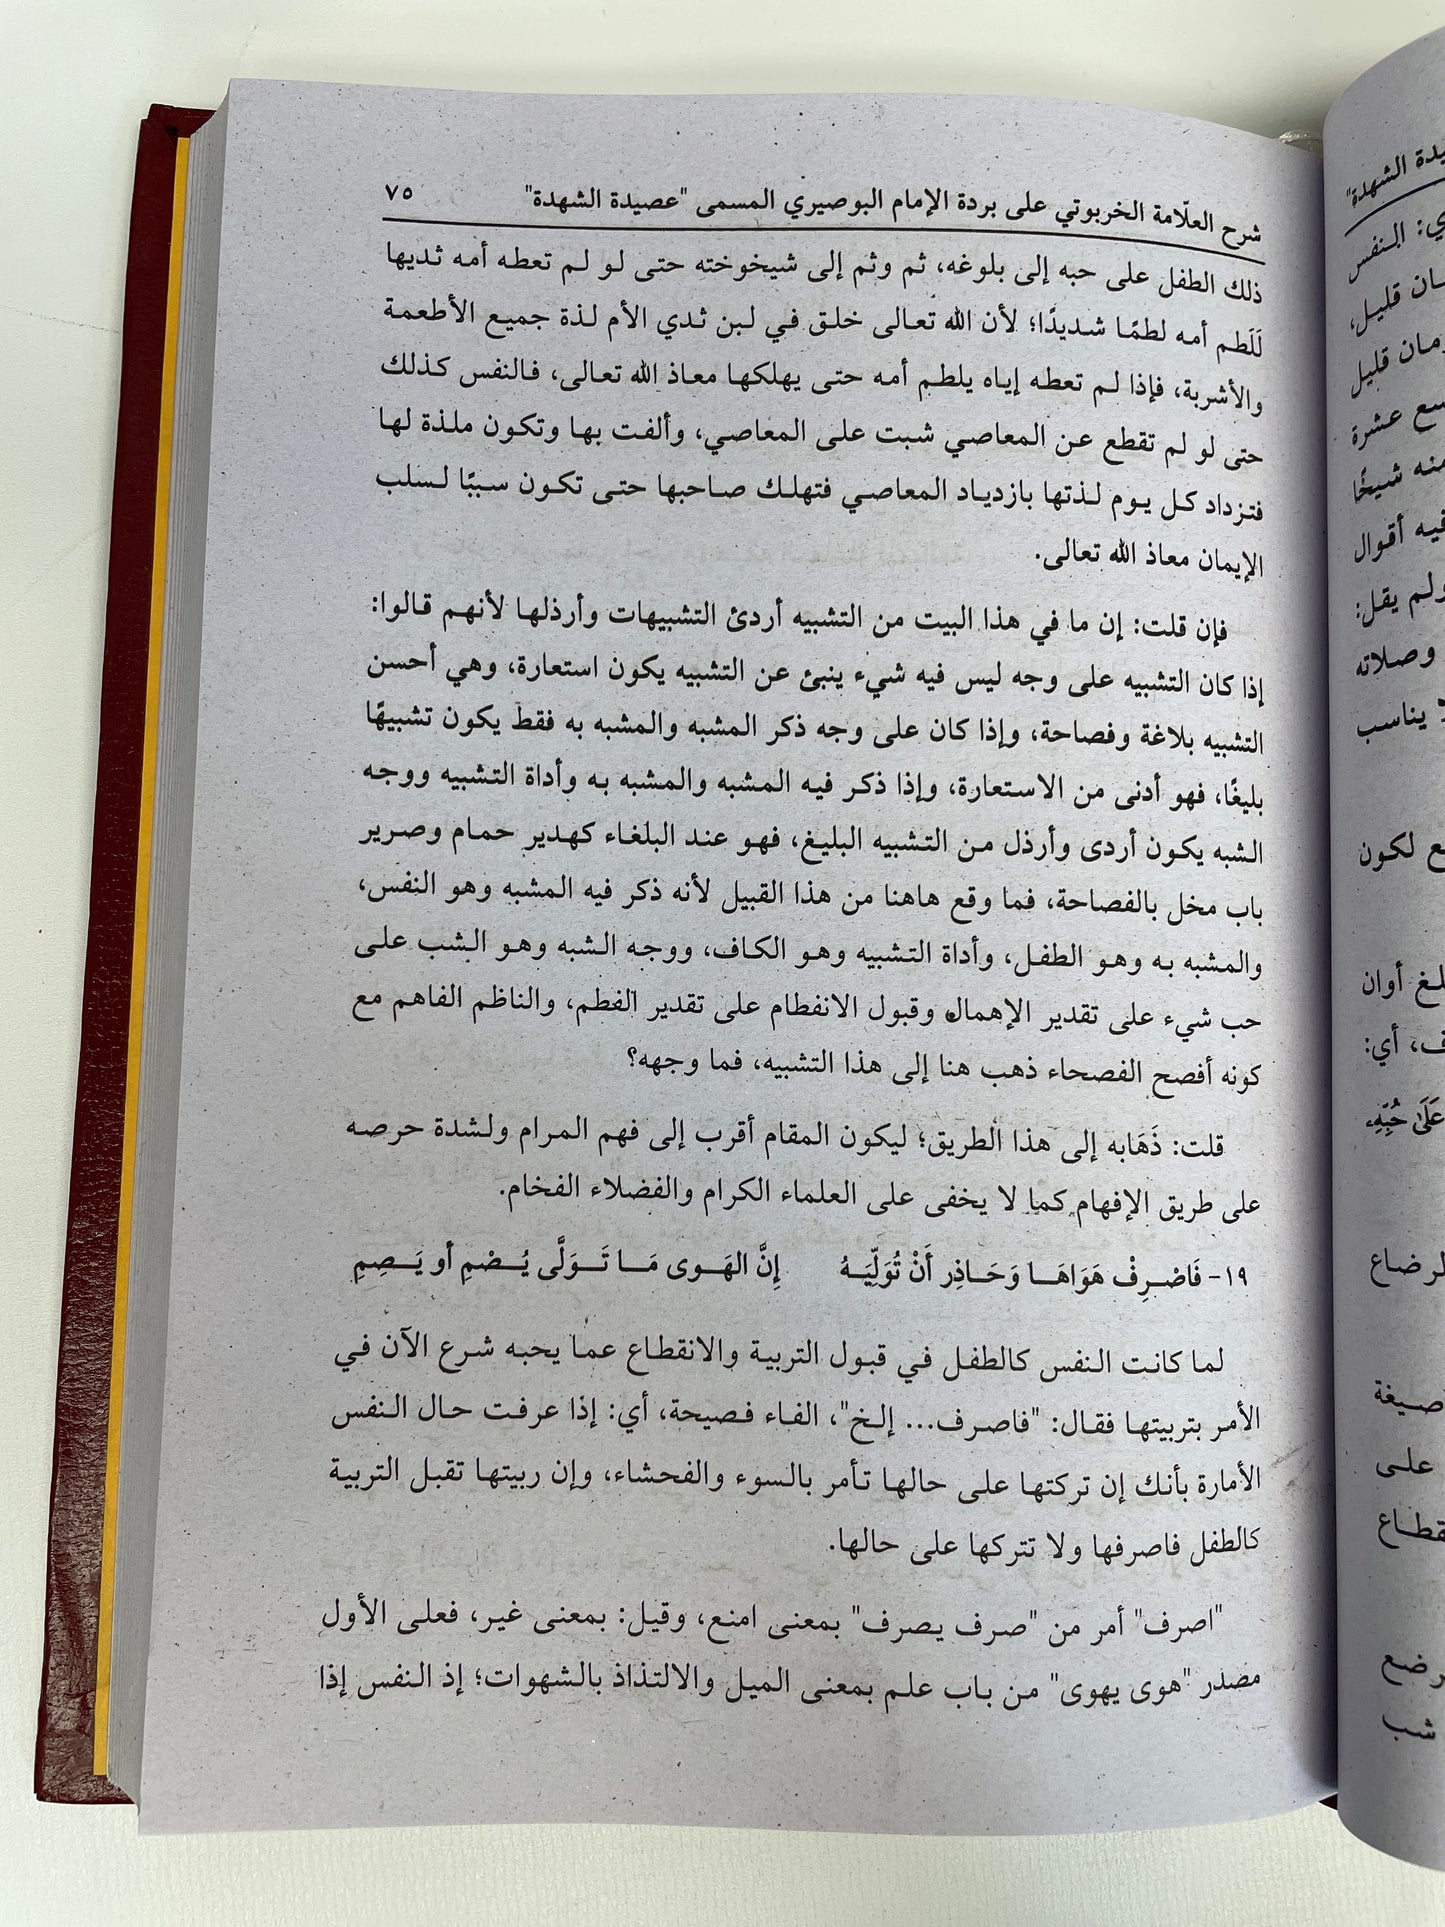 شرح العلّامة الخربوتي على بردة الإمام البوصيري المسمى "عصيدة الشهدة" ٧٥
ذلك الطفل على حبه إلى بلوغه، ثم وثم إلى شيخوخته حتى لو لم تعطه أمه ثديها
لَلَطم أمه لطمًا شديدًا؛ لأن الله تعالى خلق في لبن ثدي الأم لذة جميع الأطعمة
والأشربة، فإذا لم تعطه إياه يلطم أمه حتى يهلكها معاذ الله تعالى، فالنفس كذلك
حتى لو لم تقطع عن المعاصي شبت على المعاصي، وألفت بها وتكون ملذة لها
فتزداد كل يوم لذتها بازدياد المعاصي فتهلك صاحبها حتى تكون سببًا لسلب
الإيمان معاذ الله تعالى.
فإن قلت: إن ما في هذا البيت من التشبيه أردئ التشبيهات وأرذلها لأنهم قالوا:
إذا كان التشبيه على وجه ليس فيه شيء ينبئ عن التشبيه يكون استعارة، وهي أحسن
التشبيه بلاغة وفصاحة، وإذا كان على وجه ذكر المشبه والمشبه به فقط يكون تشبيهًا
بليغًا، فهو أدنى من الاستعارة، وإذا ذكر فيه المشبه والمشبه به وأداة التشبيه ووجه
الشبه يكون أردى وأرذل من التشبيه البليغ، فهو عند البلغاء كهدير حمام وصرير
باب مخل بالفصاحة، فما وقع هاهنا من هذا القبيل لأنه ذكر فيه المشبه وهو النفس،
والمشبه به وهو الطفل، وأداة التشبيه وهو الكاف، ووجه الشبه وهو الشب على
حب شيء على تقدير الإهمال وقبول الانفطام على تقدير الفطم، والناظم الفاهم مع
كونه أفصح الفصحاء ذهب هنا إلى هذا التشبيه، فما وجهه؟
قلت: ذَهَابه إلى هذا الطريق؛ ليكون المقام أقرب إلى فهم المرام ولشدة حرصه
على طريق الإفهام كما لا يخفى على العلماء الكرام والفضلاء الفخام.
١٩- فَاصْرِفْ هَوَاهَا وَحَاذِر أَنْ تُوَلِّيَهُ إِنَّ الهَوى مَا تَوَلَّى يُصْمِ أو يَصِمِ
لما كانت النفس كالطفل في قبول التربية والانقطاع عما يحبه شرع الآن في
الأمر بتربيتها فقال: "فاصرف... إلخ"، الفاء فصيحة، أي: إذا عرفت حال النفس
الأمارة بأنك إن تركتها على حالها تأمر بالسوء والفحشاء، وإن ربيتها تقبل التربية
كالطفل فاصرفها ولا تتركها على حالها.
"اصرف" أمر من "صرف يصرف" بمعنى امنع، وقيل: بمعنى غير، فعلى الأول
مصدر "هوى يهوى" من باب علم بمعنى الميل والالتذاذ بالشهوات؛ إذ النفس إذا